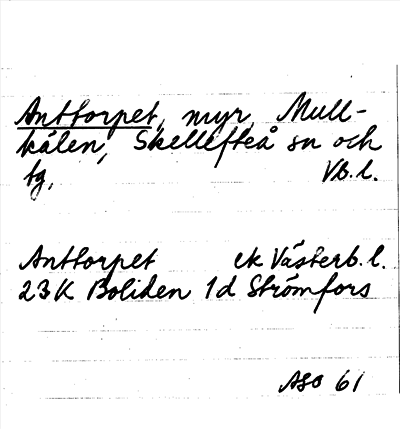 Anttorpet, myr, Mull-
kälen, Skellefteå sn och
tg, VB.l.
Anttorpet ek Västerb.l.
23K Boliden 1d Strömfors
ASO 61